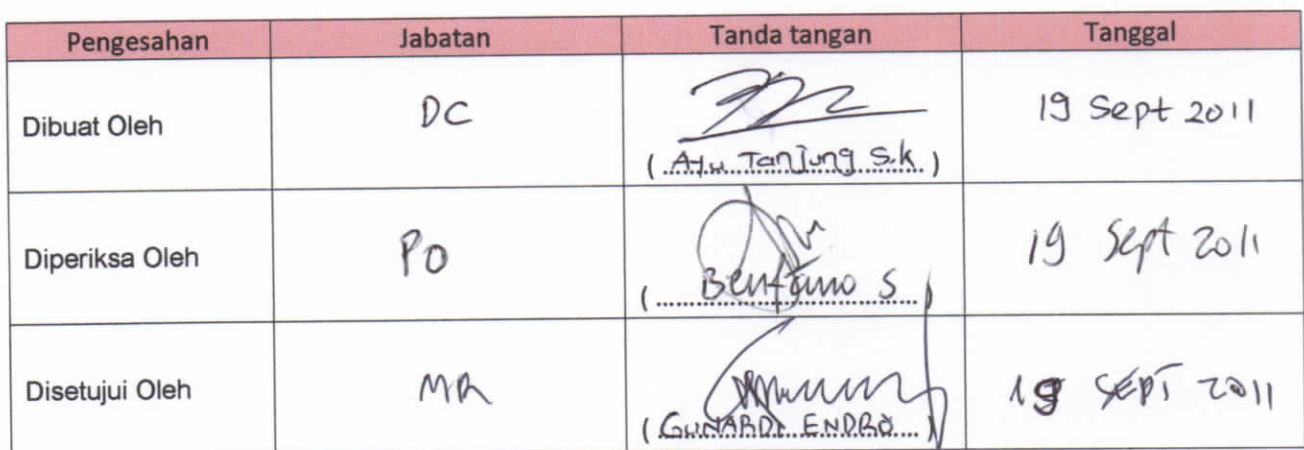 Pengesahan Jabatan Tanda tangan Tanggal
Dibuat Oleh DC (Ayu Tanjung S.K) 19 Sept 2011
Diperiksa Oleh PO (S) 19 Sept 2011
Disetujui Oleh MR (GUNARDI ENDRO) 19 SEPT 2011